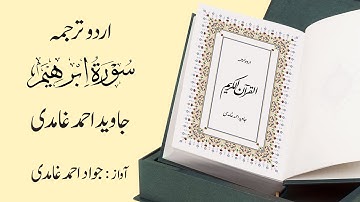 اردو ترجمہ
سورۃ ابرھیم
جاوید احمد غامدی
آواز : جواد احمد غامدی
القرآن الکریم
جاوید احمد غامدی